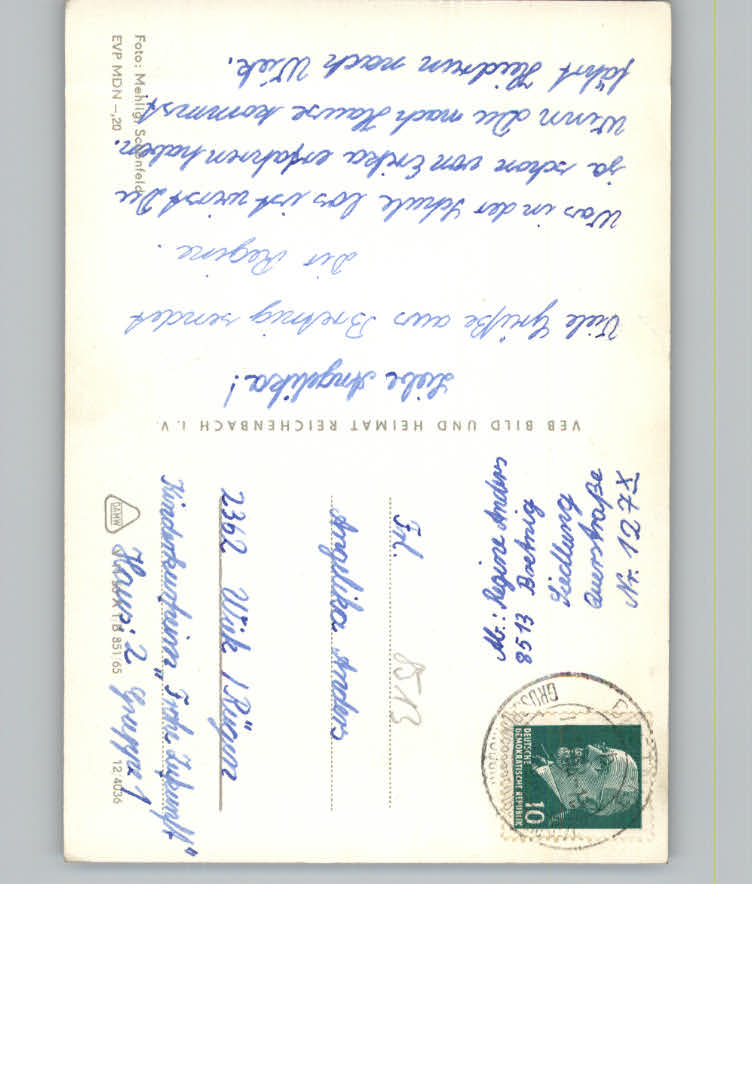 Liebe Angelika!
Viele Grüße aus Bretnig sendet
dir Regine.
Was in der Schule los ist wirst Du
ja schon von Erika erfahren haben.
Wenn du nach Hause kommst
fährt Heidrun nach Wiek.
Foto: Mehlig, Schönfeld
EVP MDN -,20
VEB BILD UND HEIMAT REICHENBACH I. V.
Ab.: Regine Anders
8513 Bretnig
Siedlung
Querstraße
Nr. 127X
DEUTSCHE
DEMOKRATISCHE REPUBLIK
10
Frl.
8513
Angelika Anders
2362 Wiek / Rügen
Kinderkurheim "Frohe Zukunft"
Haus: 2 Gruppe 1
DAMW
851/65
12/4036